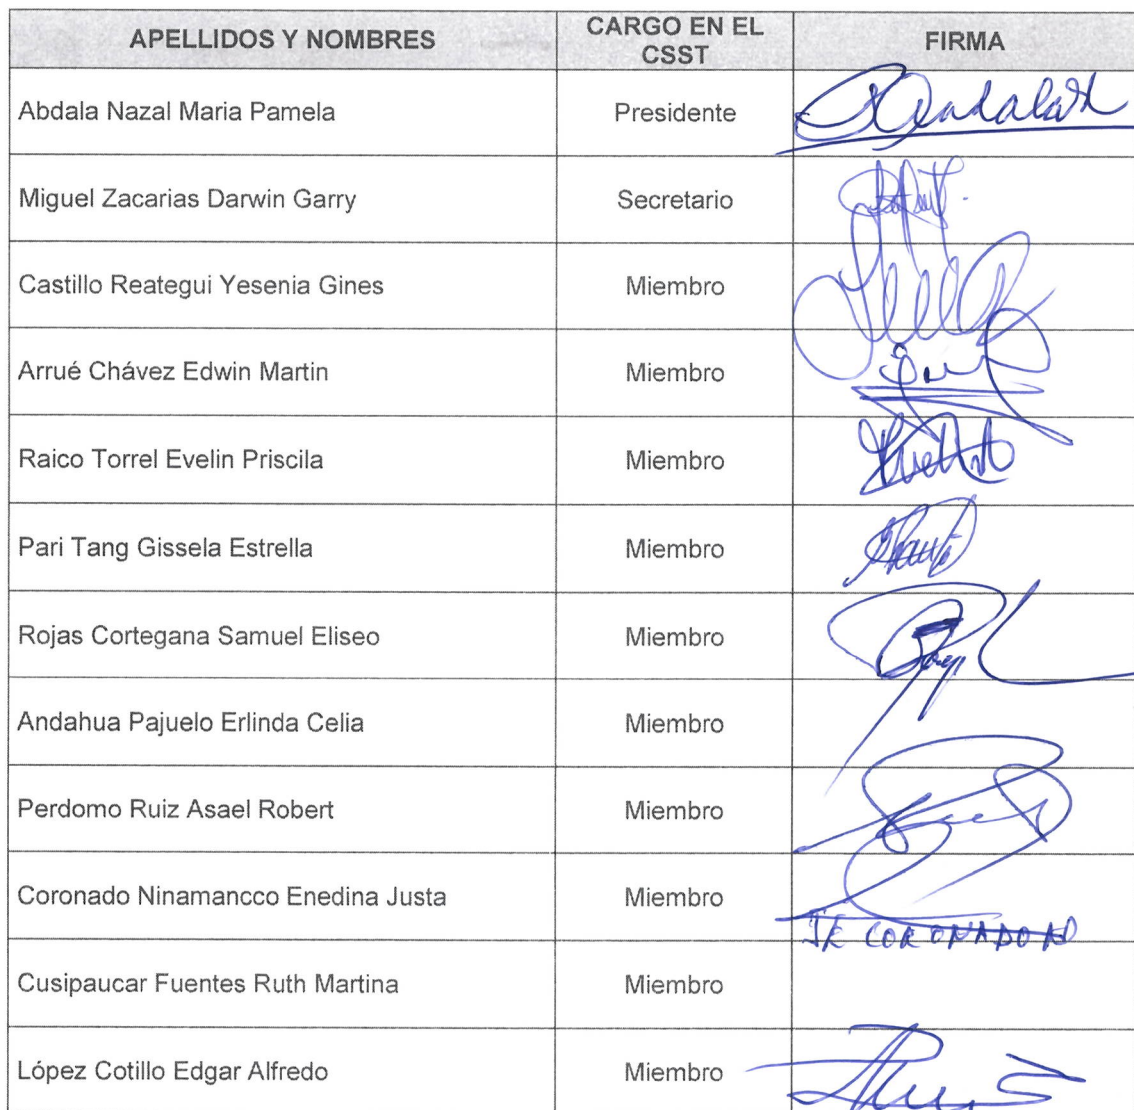 APELLIDOS Y NOMBRES CARGO EN EL CSST FIRMA
Abdala Nazal Maria Pamela Presidente
Miguel Zacarias Darwin Garry Secretario
Castillo Reategui Yesenia Gines Miembro
Arrué Chávez Edwin Martin Miembro
Raico Torrel Evelin Priscila Miembro
Pari Tang Gissela Estrella Miembro
Rojas Cortegana Samuel Eliseo Miembro
Andahua Pajuelo Erlinda Celia Miembro
Perdomo Ruiz Asael Robert Miembro
Coronado Ninamancco Enedina Justa Miembro
CORONADO
Cusipaucar Fuentes Ruth Martina Miembro
López Cotillo Edgar Alfredo Miembro